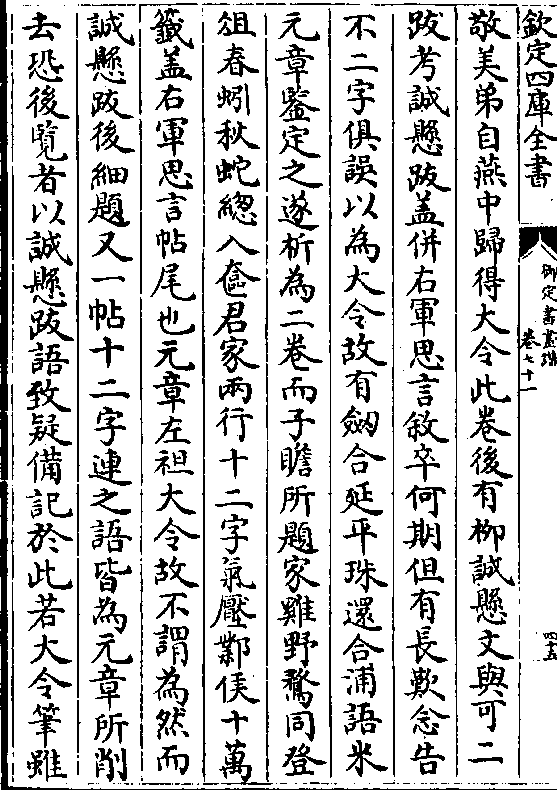 欽定四庫全書
御定書畫譜
卷七十一
四五
敬美弟自燕中歸得大令此卷後有柳誠懸文與可二
跋考誠懸跋盖併右軍思言敘卒何期但有長歎念告
不二字俱誤以為大令故有劒合延平珠還合浦語米
元章鑒定之遂析為二卷而子瞻所題家雞野鶩同登
俎春蚓秋蛇總入奩君家兩行十二字氣壓鄴侯十萬
籤盖右軍思言帖尾也元章左袒大令故不謂為然而
誠懸跋後細題又一帖十二字連之語皆為元章所削
去恐後覽者以誠懸跋語致疑備記於此若大令筆雖